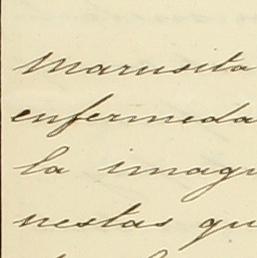 Marusita
enfermeda
la imag
nestas qu